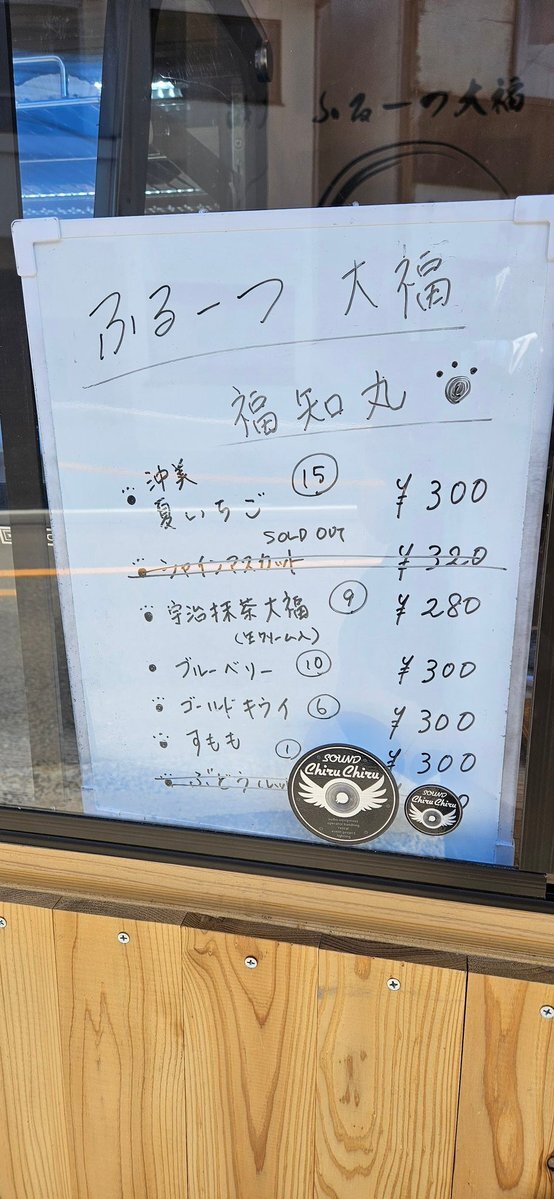 ふるーつ大福
ふるーつ 大福
福知丸
沖美
夏いちご 15 ¥300
SOLD OUT
シャインマスカット ¥320
宇治抹茶大福 9 ¥280
(生クリーム入)
ブルーベリー 10 ¥300
ゴールドキウイ 6 ¥300
すもも 1 ¥300
ぶどう
SOUND
Chiru Chiru
SOUND
Chiru Chiru